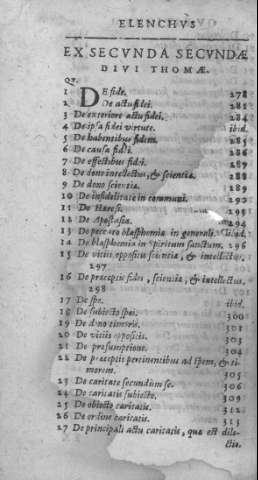 ELENCHVS
EX SECVNDA SECVNDÆ
DIVI THOMÆ.
Qv.
1 DE fide. 278
2 De actu fidei. 281
3 De exteriore actu fidei. 284
4 De ipsa fidei virtute. ibid.
5 De habentibus fidem. 285
6 De causa fidei. 286
7 De effectibus fidei. 287
8 De dono intellectus, & scientiæ. 288
9 De dono scientiæ. 289
10 De infidelitate in communi. 290
11 De Hæresi. 291
12 De Apostasia. 294
13 De peccato blasphemiæ in generali. ibid.
14 De blasphemia in Spiritum sanctum. 296
15 De vitiis oppositis scientiæ, & intellectui.
297
16 De præceptis fidei, scientiæ, & intellectus.
298
17 De spe. ibid.
18 De subiecto spei. 300
19 De dono timoris. 301
20 De vitiis oppositis. 303
21 De presumptione. 304
22 De præceptis pertinentibus ad spem, & ti-
morem. 305
23 De caritate secundum se. 306
24 De caritatis subiecto. 309
25 De obiecto caritatis. 312
26 De ordine caritatis. 313
27 De principali actu caritatis, quæ est dile-
ctio.